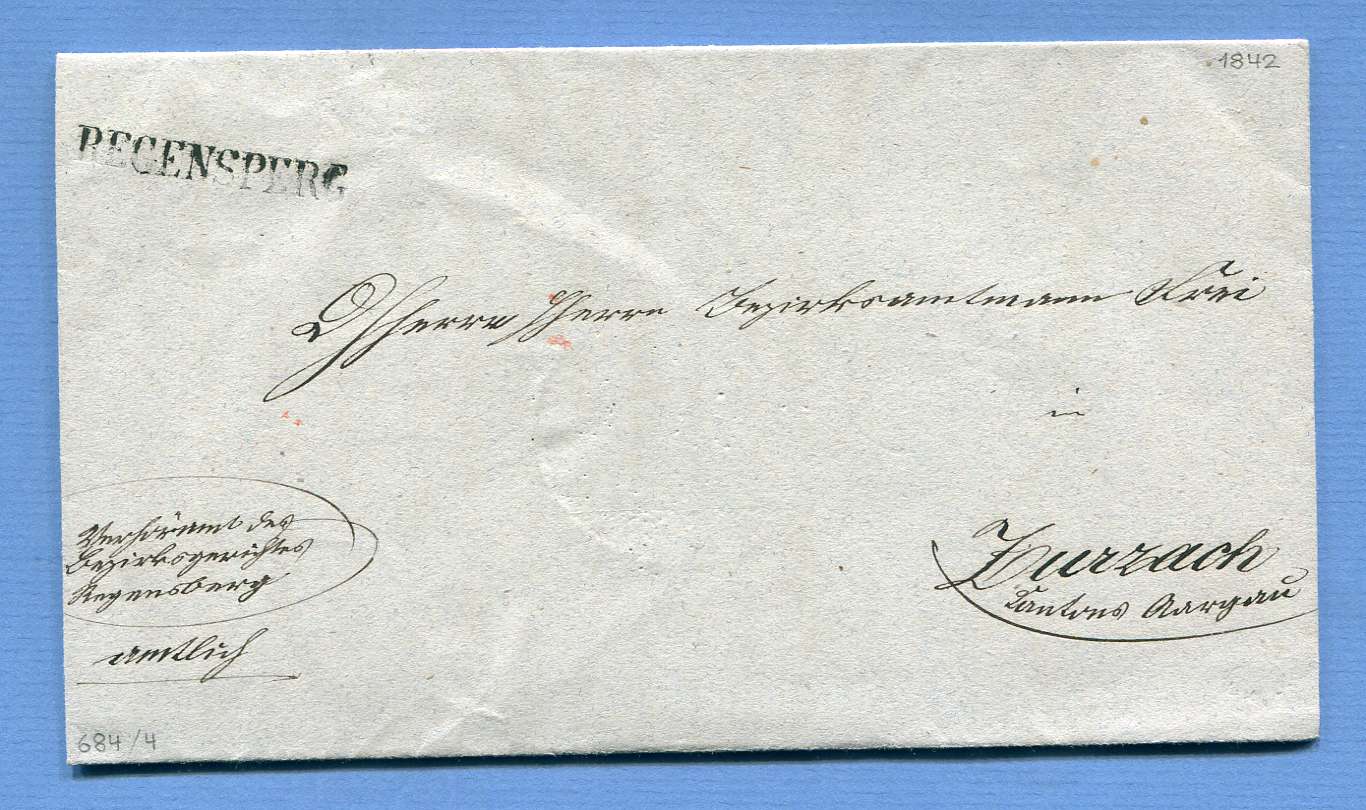 1842
REGENSPERG
Herrn Bezirksamtmann Frei
in
Zurzach
Cantons Aargau
Verhöramt des
Bezirksgerichtes
Regensberg
amtlich
684/4